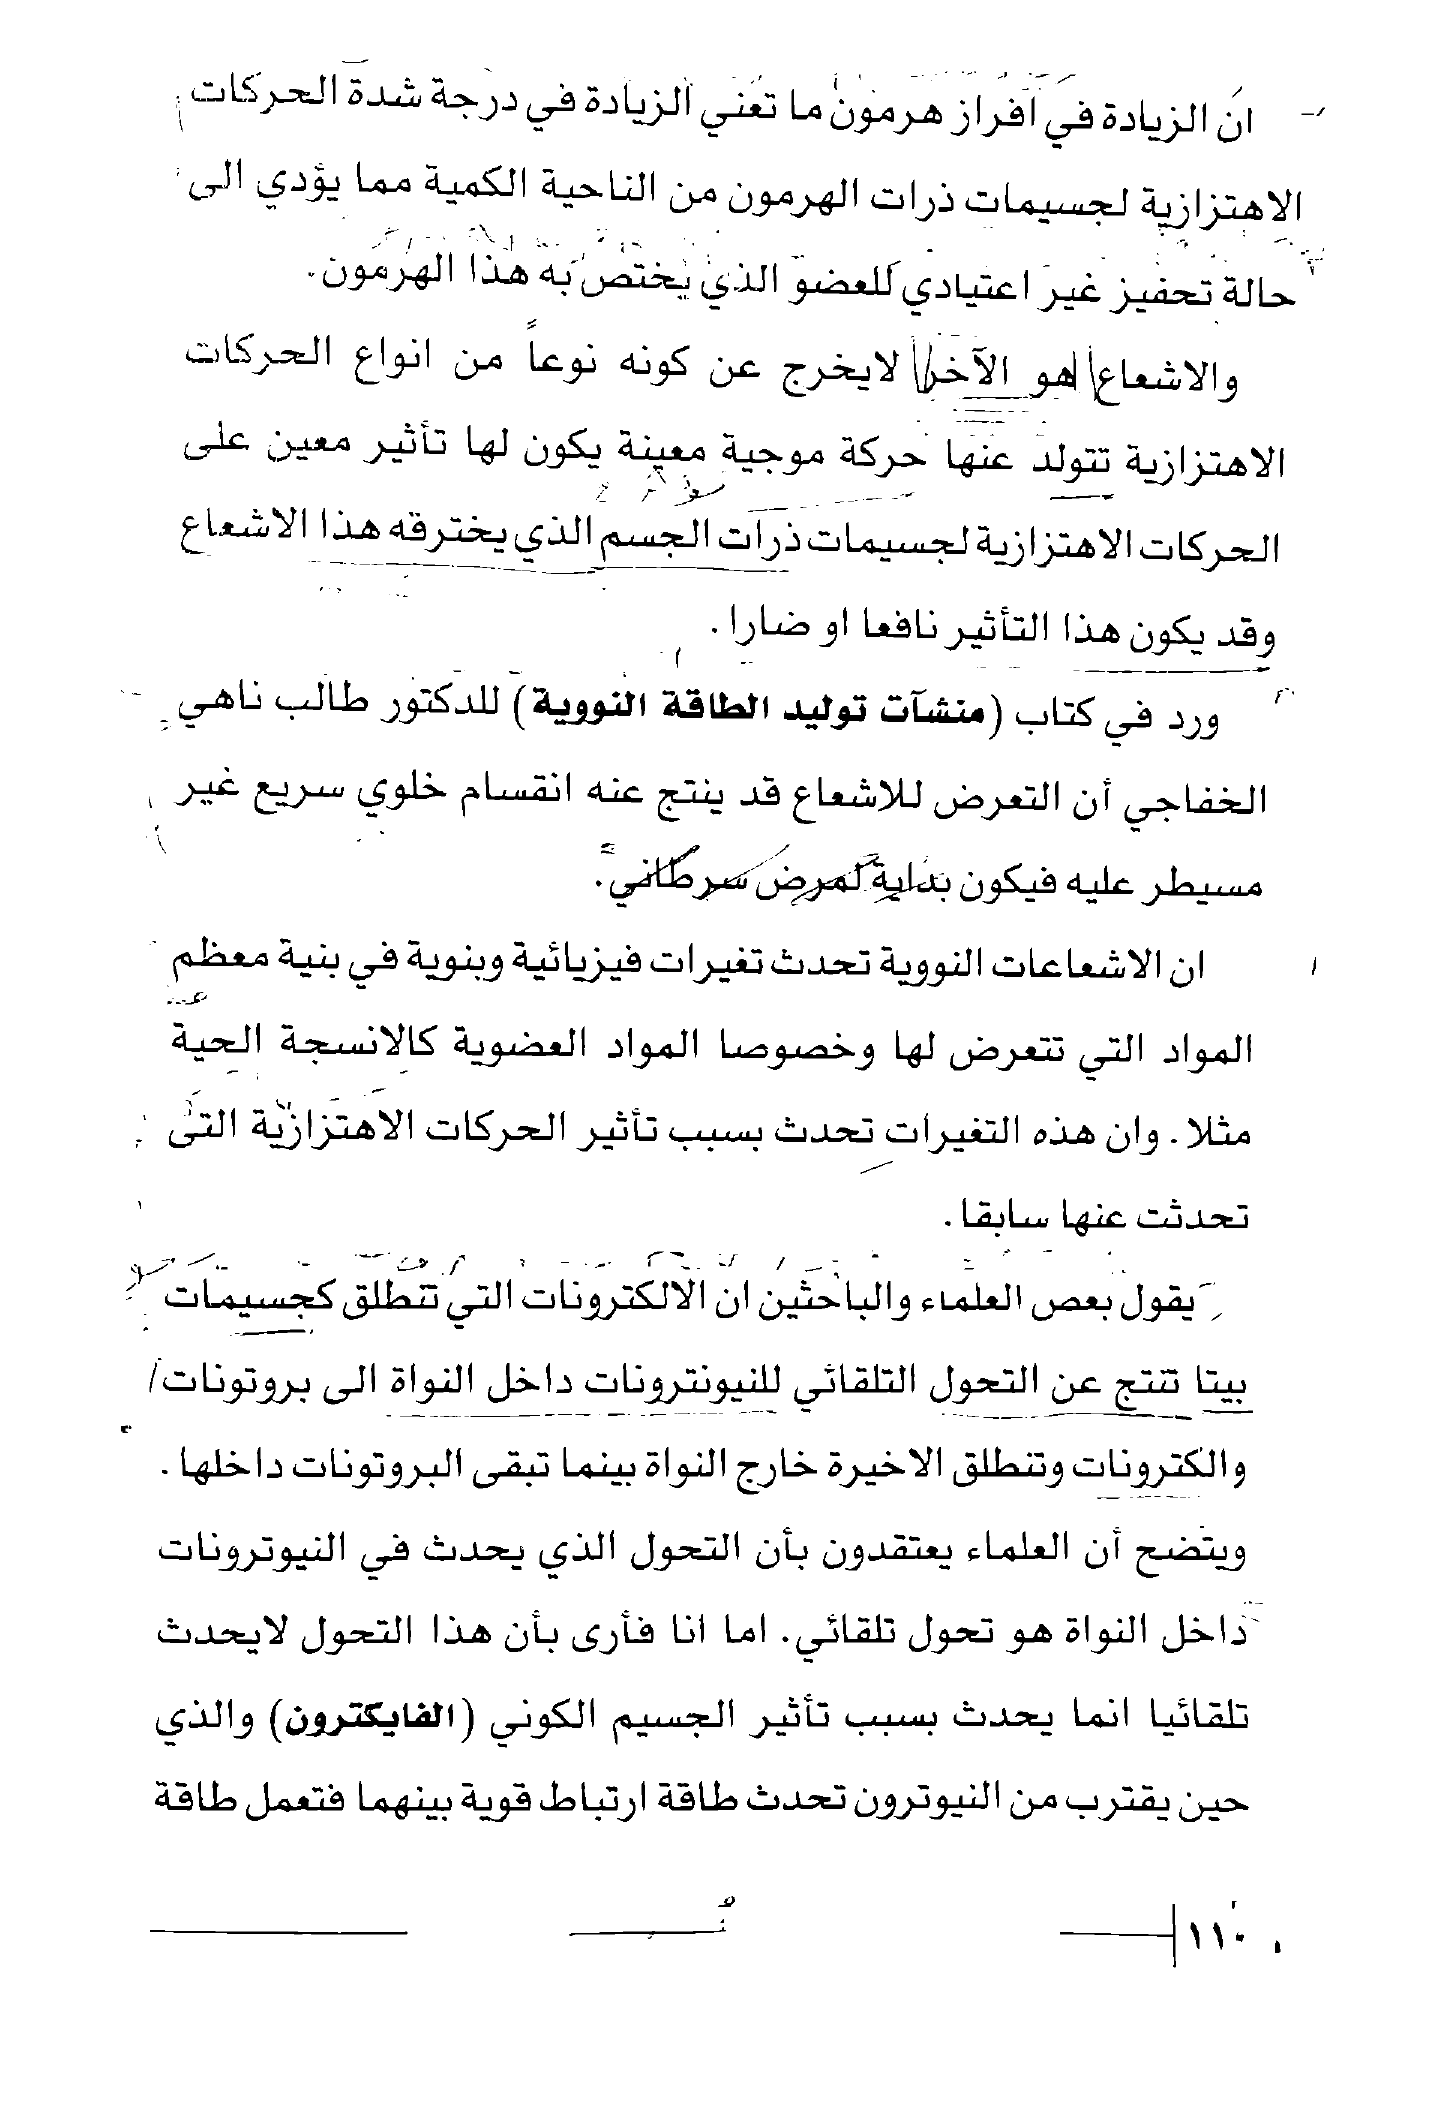 ان الزيادة في افراز هرمون ما تعني الزيادة في درجة شدة الحركات
الاهتزازية لجسيمات ذرات الهرمون من الناحية الكمية مما يؤدي الى
حالة تحفيز غير اعتيادي للعضو الذي يختص به هذا الهرمون.
والاشعاع هو الآخر لايخرج عن كونه نوعاً من انواع الحركات
الاهتزازية تتولد عنها حركة موجية معينة يكون لها تأثير معين على
الحركات الاهتزازية لجسيمات ذرات الجسم الذي يخترقه هذا الاشعاع
وقد يكون هذا التأثير نافعا او ضارا.
ورد في كتاب (منشآت توليد الطاقة النووية) للدكتور طالب ناهي
الخفاجي أن التعرض للاشعاع قد ينتج عنه انقسام خلوي سريع غير
مسيطر عليه فيكون بداية لمرض سرطاني.
ان الاشعاعات النووية تحدث تغيرات فيزيائية وبنوية في بنية معظم
المواد التي تتعرض لها وخصوصا المواد العضوية كالانسجة الحية
مثلا. وان هذه التغيرات تحدث بسبب تأثير الحركات الاهتزازية التي
تحدثت عنها سابقا.
يقول بعض العلماء والباحثين ان الالكترونات التي تنطلق كجسيمات
بيتا تنتج عن التحول التلقائي للنيونترونات داخل النواة الى بروتونات/
والكترونات وتنطلق الاخيرة خارج النواة بينما تبقى البروتونات داخلها.
ويتضح أن العلماء يعتقدون بأن التحول الذي يحدث في النيوترونات
داخل النواة هو تحول تلقائي. اما انا فأرى بأن هذا التحول لايحدث
تلقائيا انما يحدث بسبب تأثير الجسيم الكوني (الفايكترون) والذي
حين يقترب من النيوترون تحدث طاقة ارتباط قوية بينهما فتعمل طاقة
١١٠